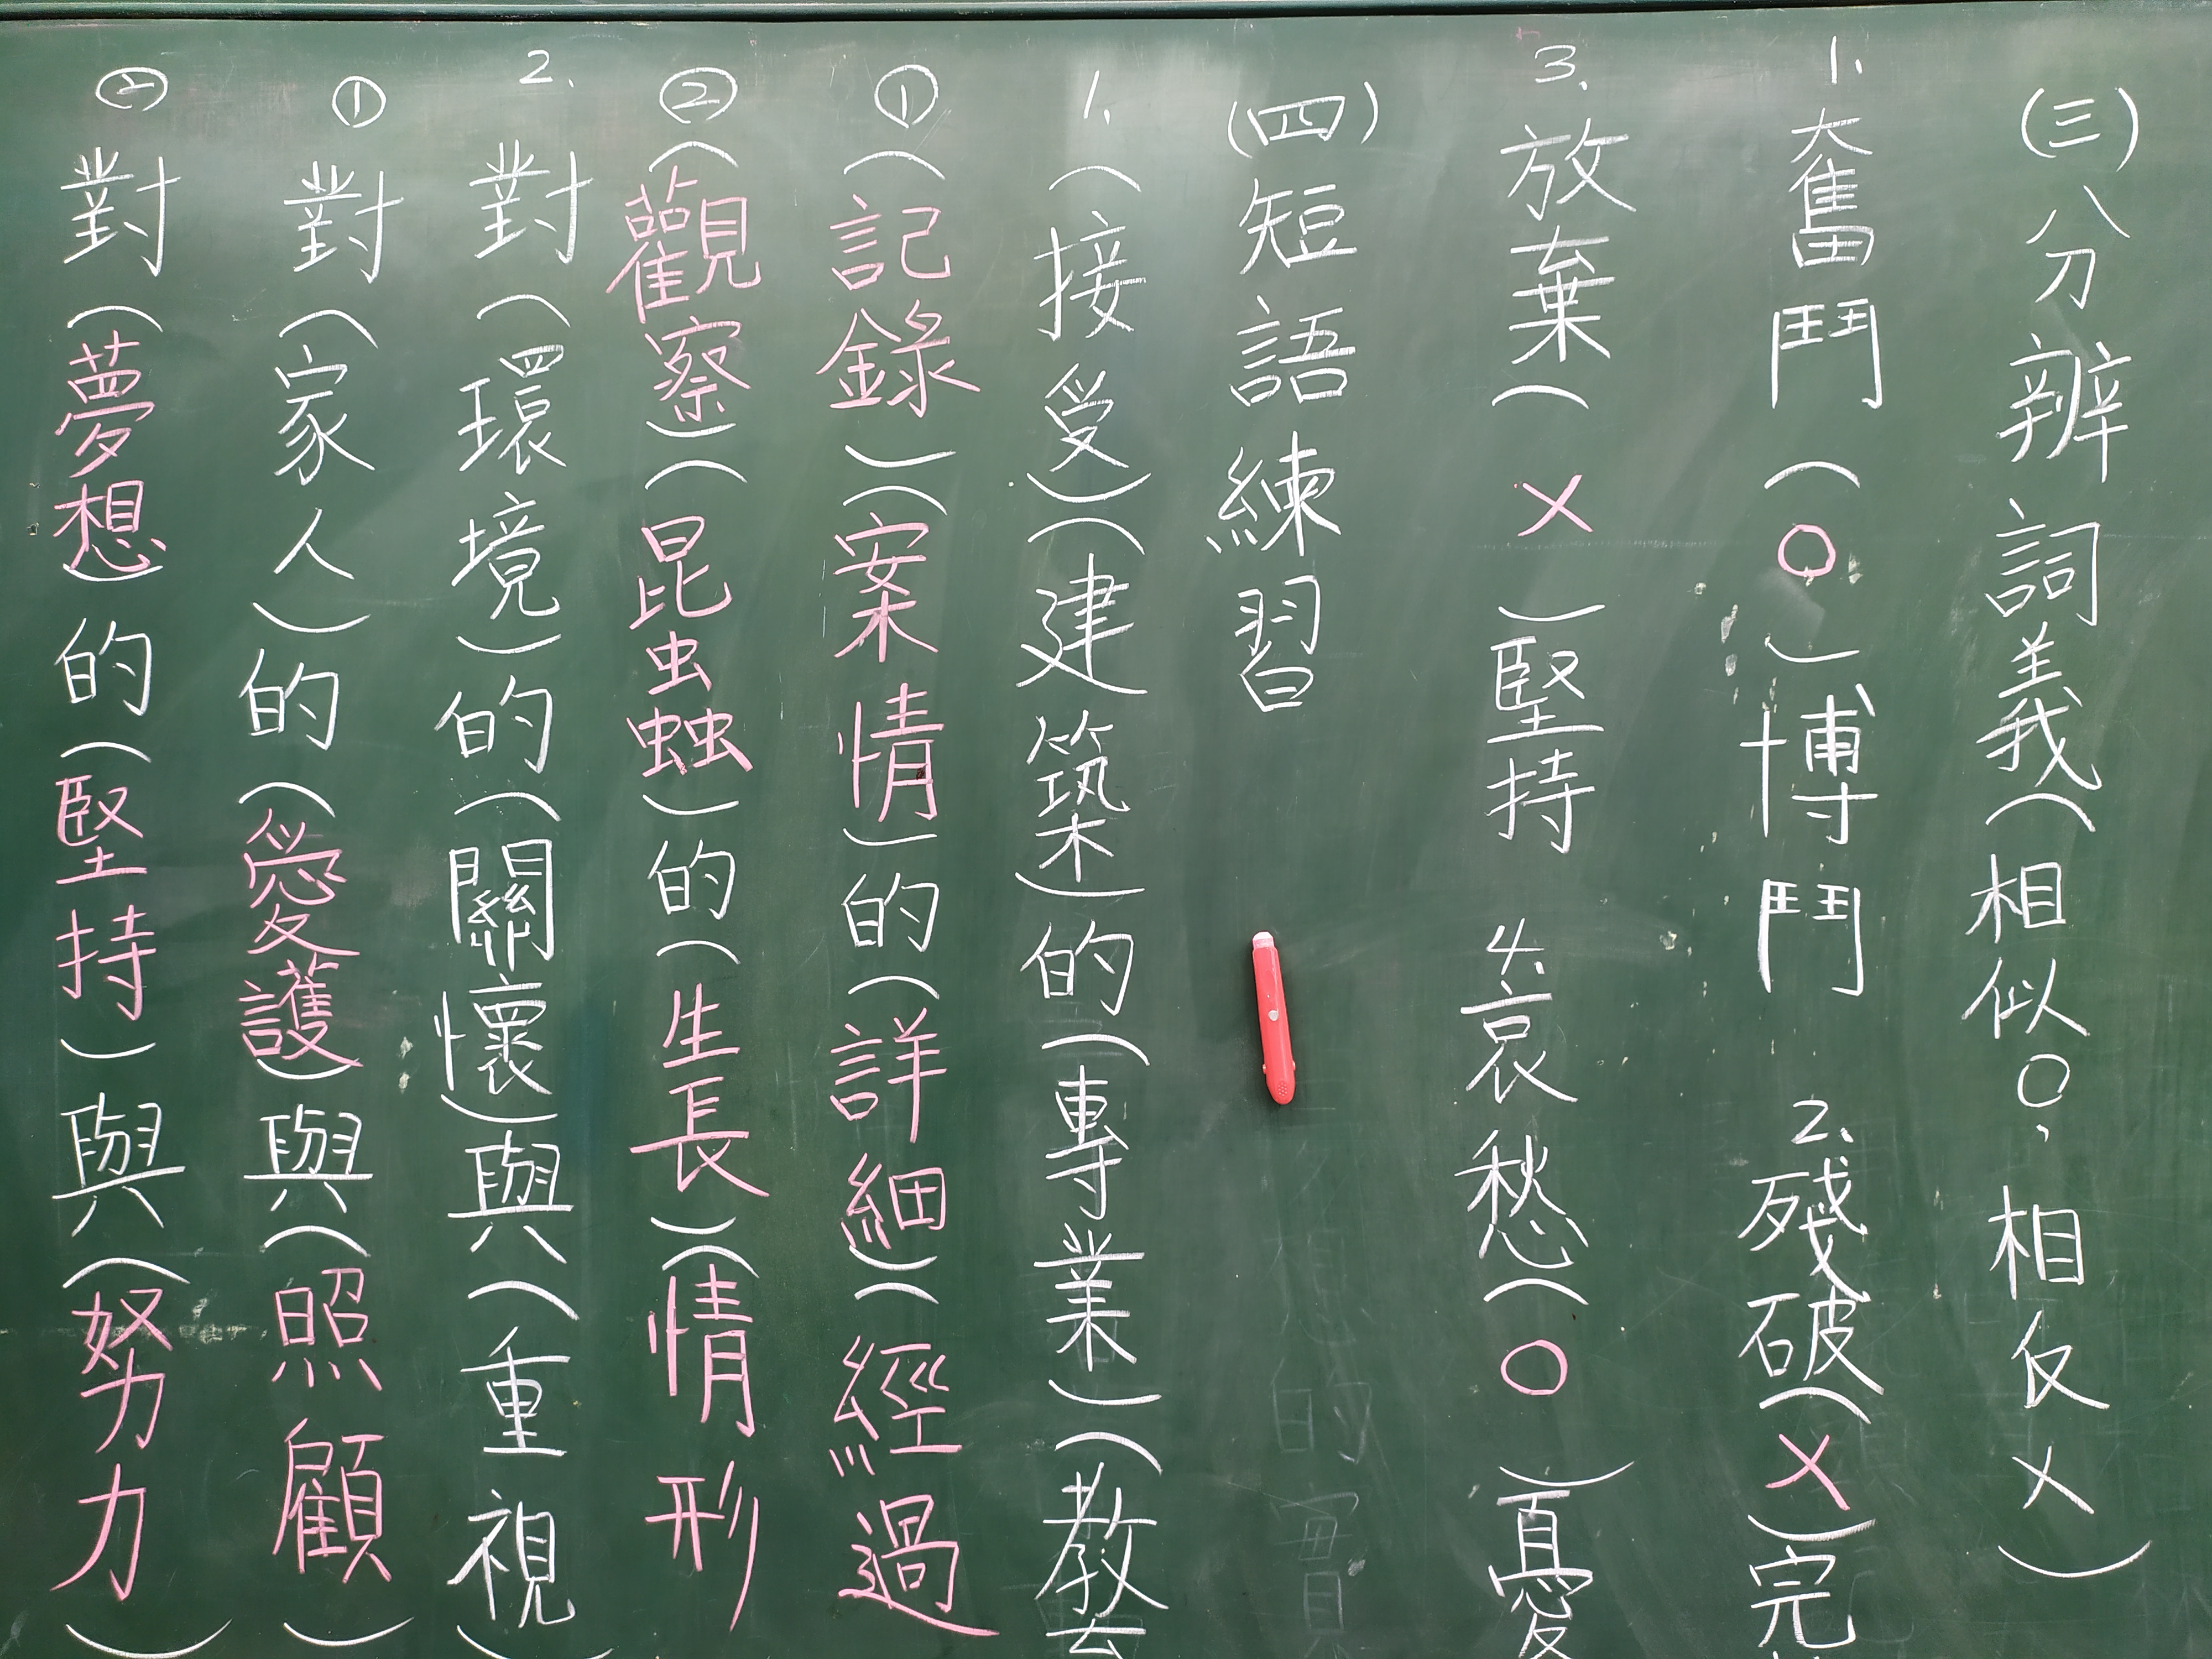 (三)分辨詞義(相似○,相反×)
1.奮鬥(○)博鬥 2.殘破(×)完
3.放棄(×)堅持 4.哀愁(○)憂
(四)短語練習
1.(接受)(建築)的(專業)(教
①(記錄)(案情)的(詳細)(經過
②(觀察)(昆蟲)的(生長)(情形
2.對(環境)的(關懷)與(重視)
①對(家人)的(愛護)與(照顧)
②對(夢想)的(堅持)與(努力)